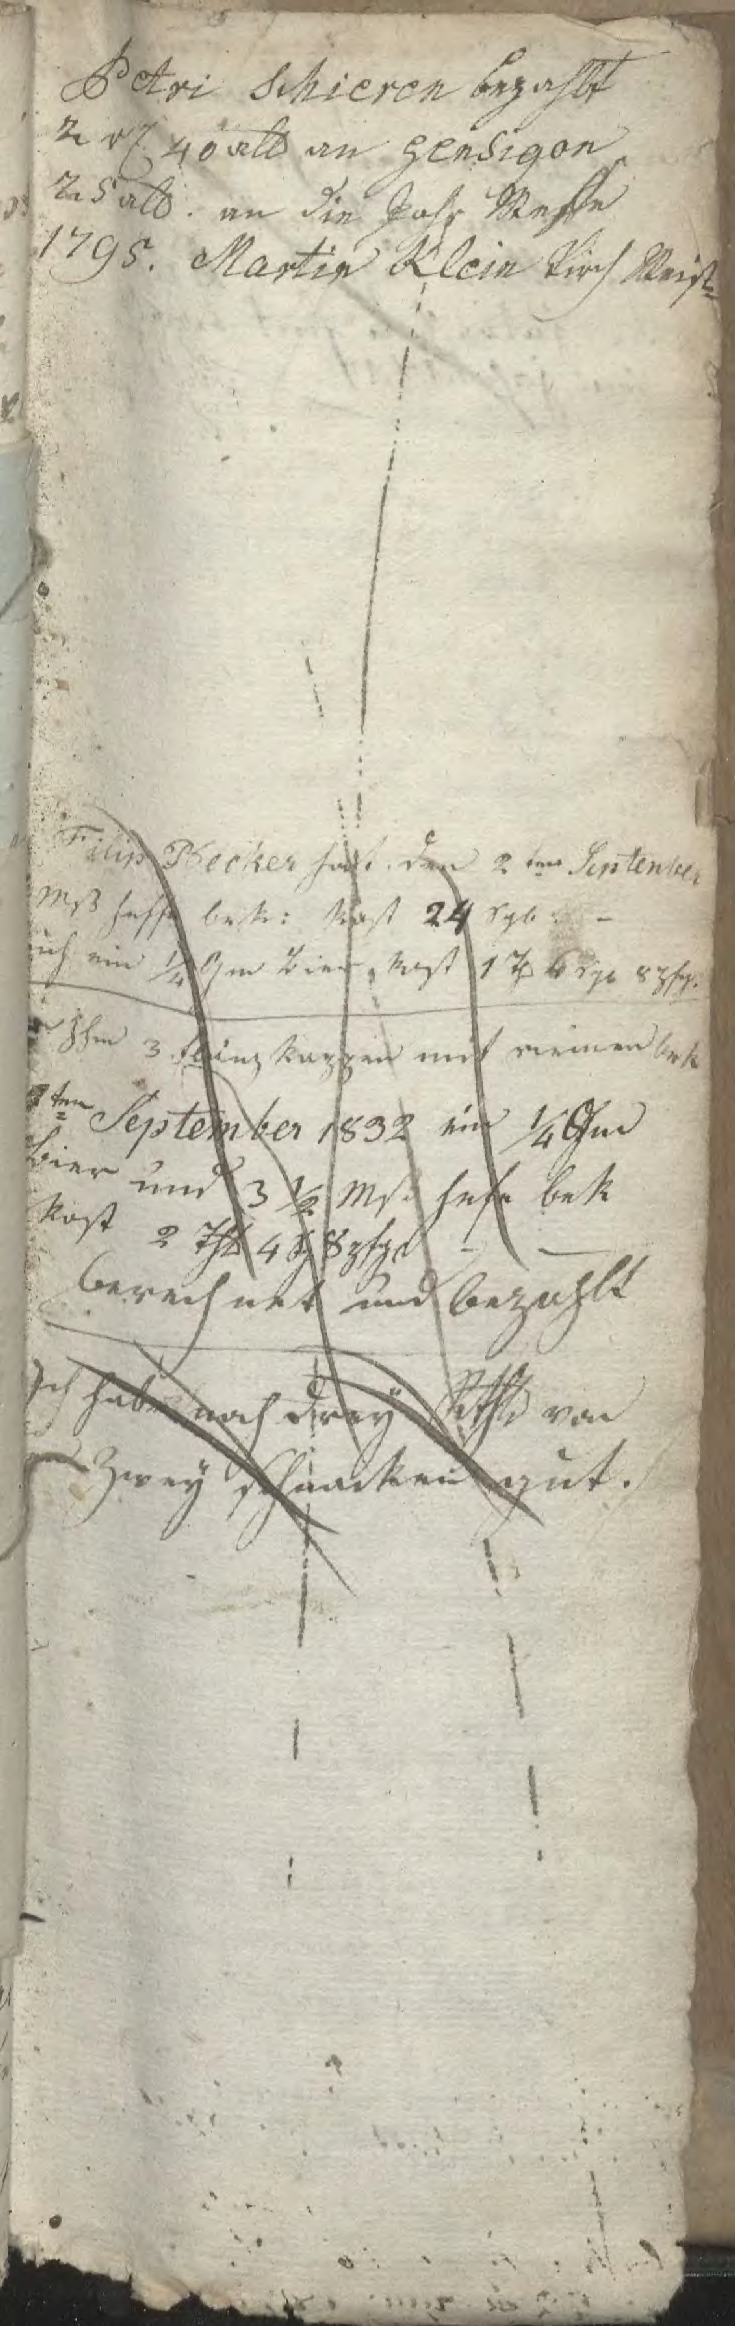 Petri Schieren bezahlt
2 rt 40 alb an gensigon
25 alb. an die Jahr Messe
1795. Martin Klein Kirch Meist=
Filip Becker hat den 2ten September
Mß heffe bek: kost 24 Sgb. –
ich ein 1/4 Ohm Bier, kost 1 Th 6 Sgb 8 pfg.
Ihm 3 kappen mit meinen bek
ten September 1832 ein 1/4 Ohm
Bier und 3 1/2 Mß hefe bek
kost 2 Thl 4 Sg 8 pfg –
berechnet und bezahlt
Ich habe noch drey von
Zwey gut.